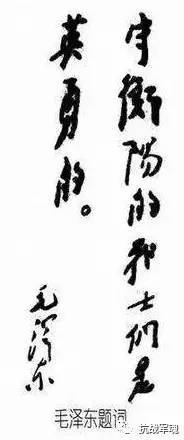 守衡陽的战士们是
英勇的。
毛泽东
毛泽东题词
抗战军魂